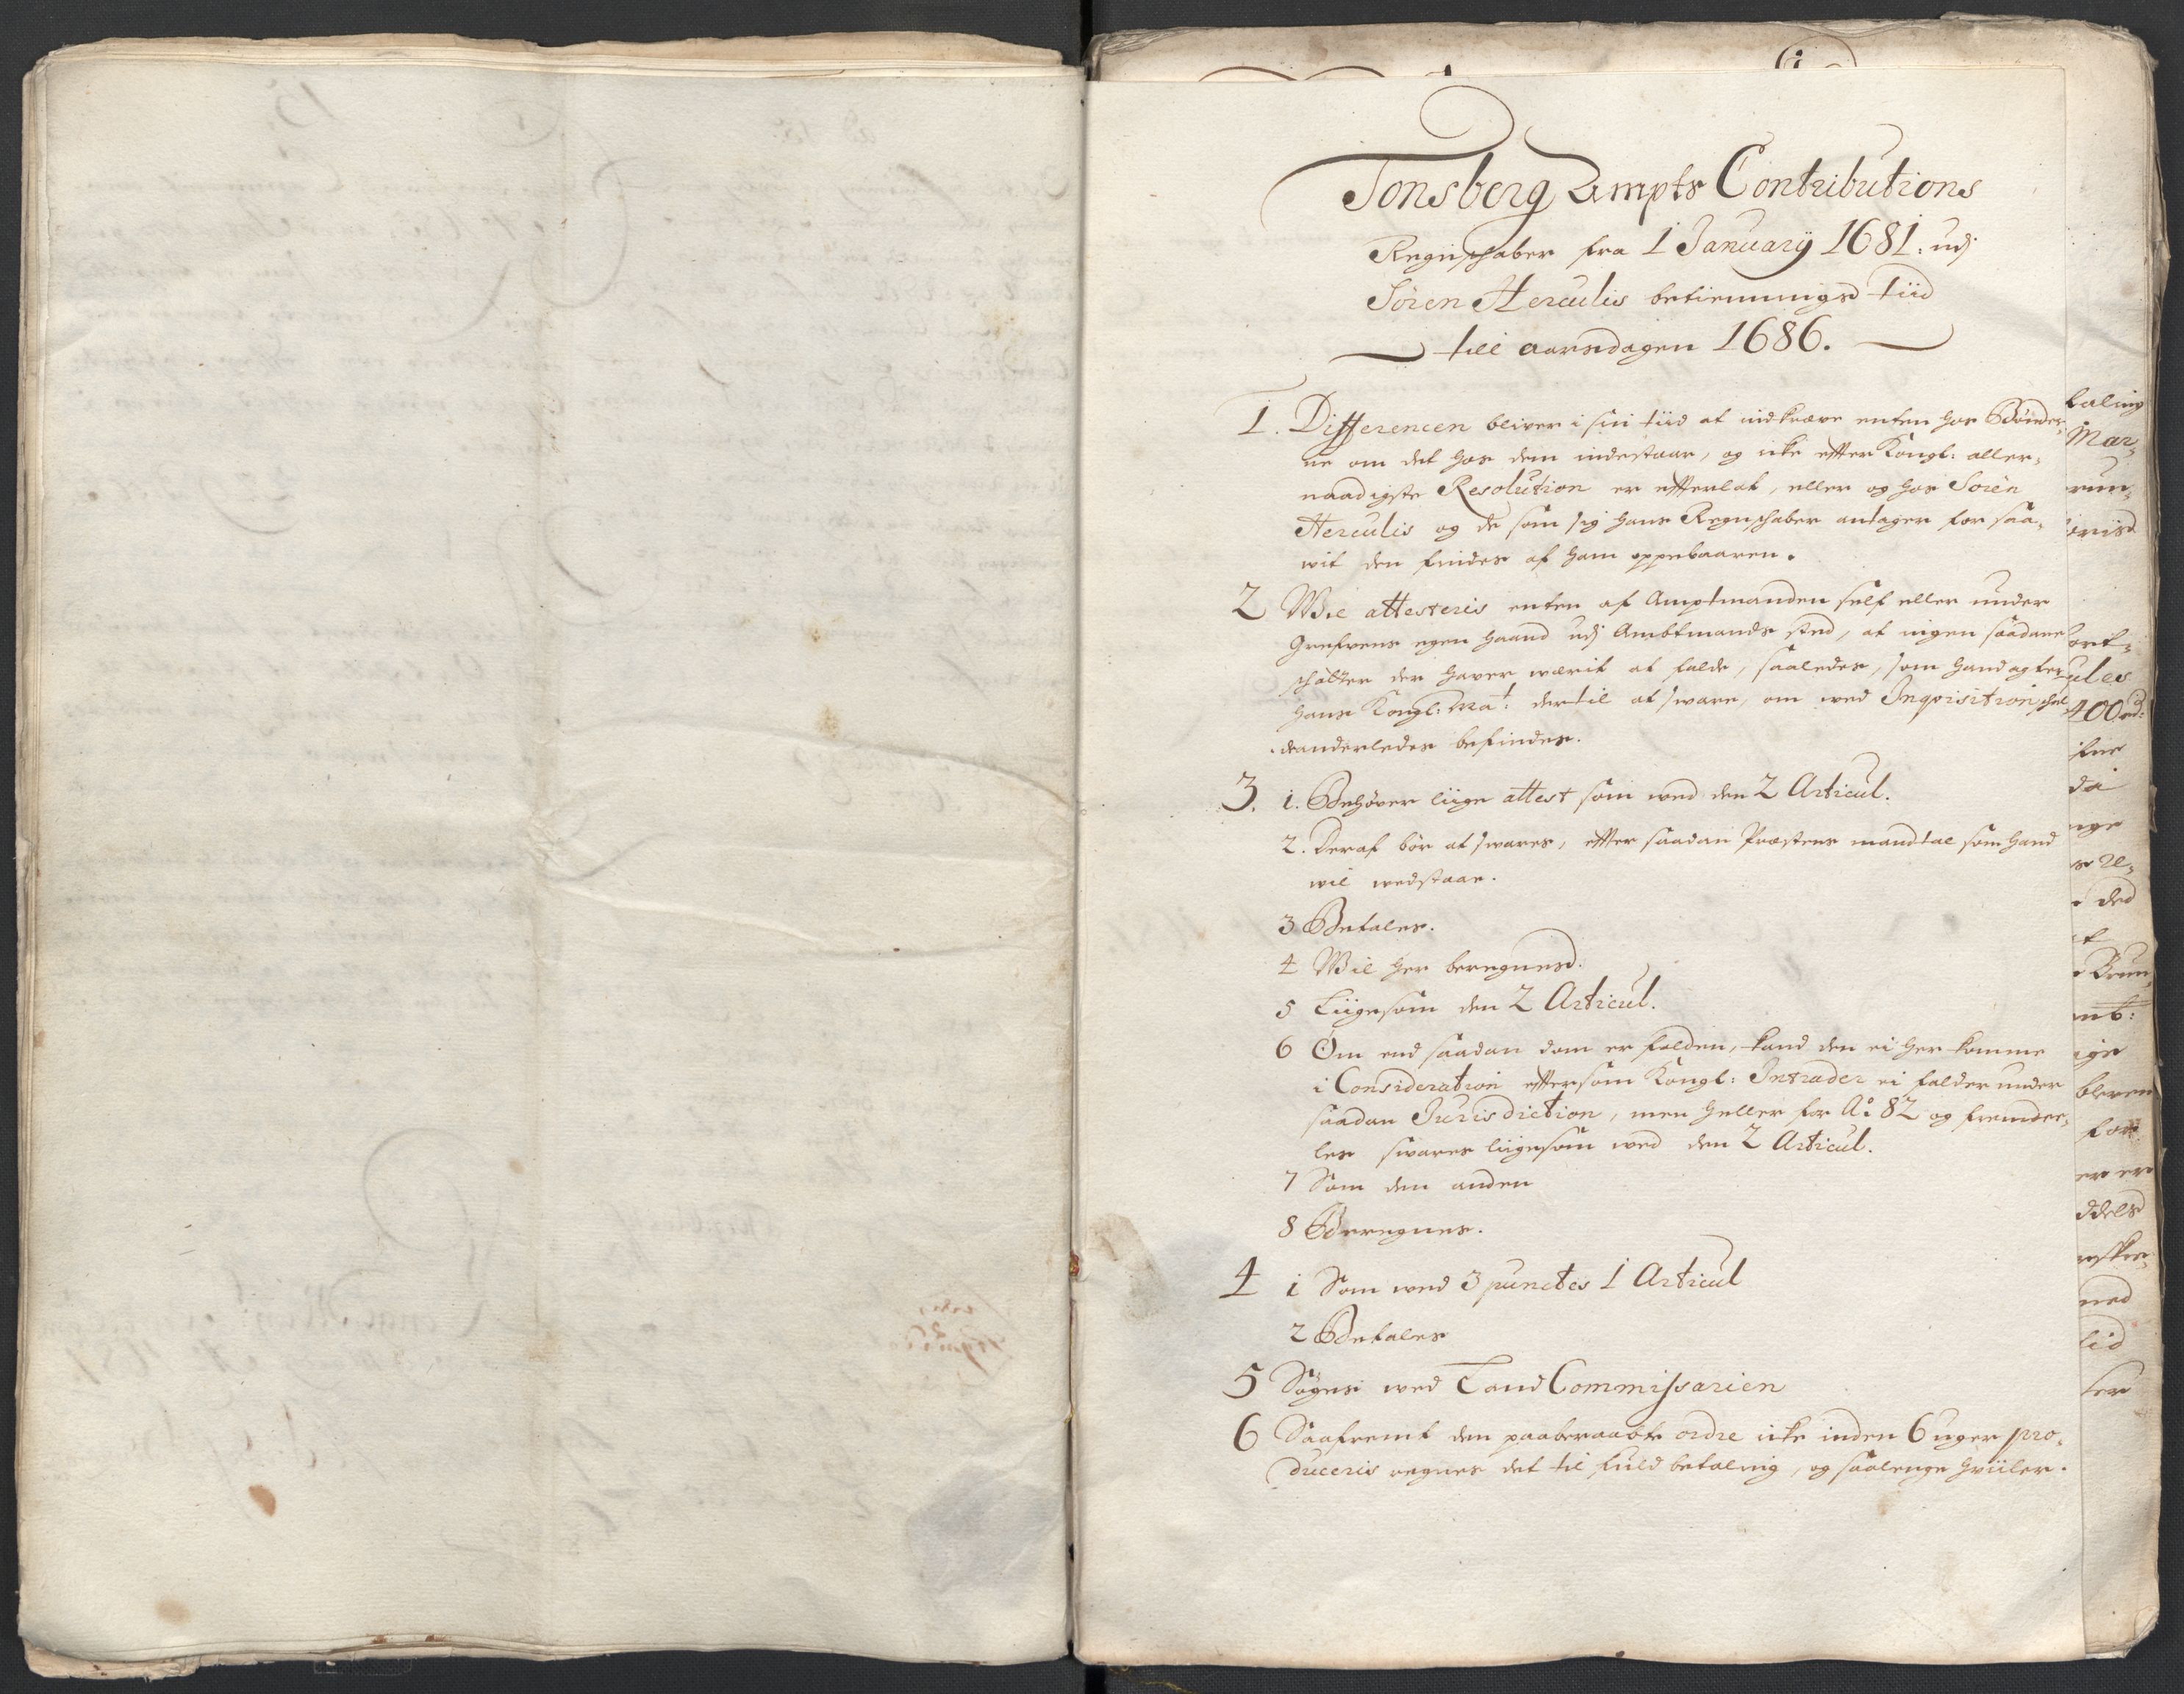 Tonsberg Ampts Contributions
Regnschaber fra 1 January 1681. udj
Sören Herculis betienningsd tiid
till aarsdagen 1686.
1. Differencen bliver i sin tiid at indkræve enten hos Bönder,
ne om det hos dem indestaar, og icke effter Kongl: aller,
naadigste Resolution er efferlat, eller og hos Sören
Herculis og de som sig hans Regnschaber antager for saa,
wit den findes af ham oppebaaren.
2 Wil attesteris enten af Amptmanden self eller under
Grefvens egen haand udj Ambtmands sted, at ingen saadane
schatter der hafver wærit at falde, saaledes, som hand agter
hans Kongl: Ma.t: dertil at sware, om wed Inqvisition schal
anderledes befindes.
3. 1. Behöver liige attest som wed den 2 Articul.
2. Deraf bör at swares, effter saadan Præstens mandtal som hand
wil wedstaae.
3 Betales.
4 Wil her beregnesd.
5 Liigesom den 2 Articul.
6 Om end saadan dom er falden, kand den ei her komme
i Consideration effersom Kongl: Intrader ei falder under
saadan Jurisdiction, men heller for A.o 82 og fremdee,
les swares liigesom wed den 2 Articul.
7 Som den anden
8 Beregnes.
4 1 Som wed 3 punctes 1 Articul
2 Betales
5 Söges wed Land Commissarien
6 Saafremt den paaberaabte ordre icke inden 6 uger pro,
duceris regnes det til fuld betaling, og saalenge hviiler.